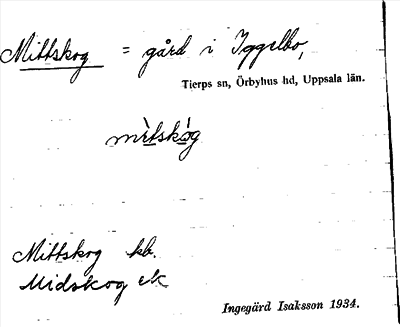 Mittskog = gård i Iggelbo,
Tierps sn, Örbyhus hd, Uppsala län.
mìtskòg
Mittskog kb.
Midskog ek
Ingegärd Isaksson 1934.